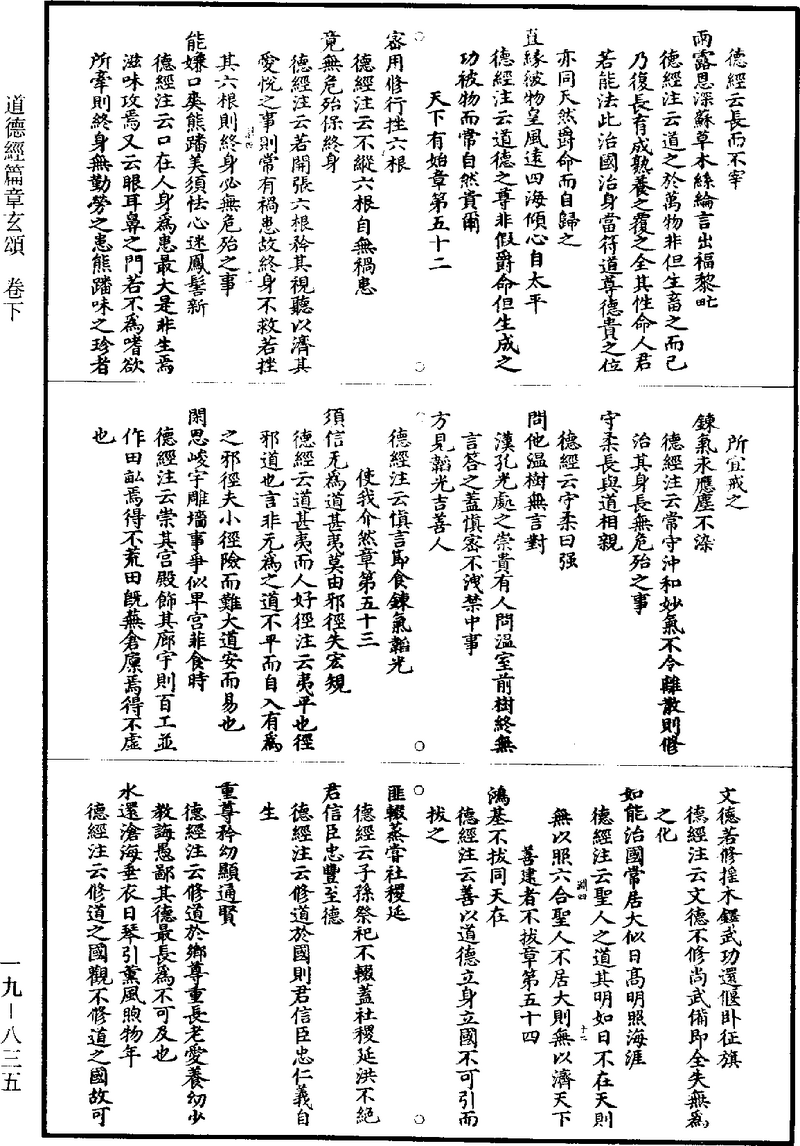 道德經篇章玄頌　卷下
德經云長而不宰
雨露恩深蘇草木絲綸言出福黎甿
德經注云道之於萬物非但生畜之而已
乃復長育成熟養之覆之全其性命人君
若能法此治國治身當符道尊德貴之位
亦同天然爵命而自歸之
直緣彼物皇風遠四海傾心自太平
德經注云道德之尊非假爵命但生成之
功被物而常自然貴爾
天下有始章第五十二
密用修行挫六根
德經注云不縱六根自無禍患
竟無危殆保終身
德經注云若開張六根矜其視聽以濟其
愛悅之事則常有禍患故終身不救若挫
其六根則終身必無危殆之事
能嫌口爽熊蹯美須怯心迷鳳髻新
德經注云口在人身為患最大是非生焉
滋味攻焉又云眼耳鼻之門若不為嗜欲
所牽則終身無勤勞之患熊蹯味之珍者
所宜戒之
鍊氣永應塵不染
德經注云常守沖和妙氣不令離散則修
治其身長無危殆之事
守柔長與道相親
德經云守柔曰强
問他溫樹無言對
漢孔光處之崇貴有人問溫室前樹終無
言答之蓋慎密不洩禁中事
方見韜光吉善人
德經注云慎言節食鍊氣韜光
使我介然章第五十三
須信无為道甚夷莫由邪徑失宏規
德經云道甚夷而人好徑注云夷平也徑
邪道也言非无為之道不平而自入有為
之邪徑夫小徑險而難大道安而易也
閑思峻宇雕墻事爭似卑宮菲食時
德經注云崇其宮殿飾其廊宇則百工並
作田畝焉得不荒田既蕪倉廩焉得不虛
也
文德若修摧木鐸武功還偃卧征旗
德經注云文德不修尚武備即全失無為
之化
如能治國常居大似日高明照海涯
德經注云聖人之道其明如日不在天則
無以照六合聖人不居大則無以濟天下
善建者不拔章第五十四
鴻基不拔同天在
德經注云善以道德立身立國不可引而
拔之
匪輟蒸甞社稷延
德經云子孫祭祀不輟蓋社稷延洪不絕
君信臣忠豐至德
德經注云修道於國則君信臣忠仁義自
生
重尊矜幼顯通賢
德經注云修道於鄉尊重長老愛養幼少
教誨愚鄙其德最長為不可及也
水還滄海垂衣日琴引薰風煦物年
德經注云修道之國觀不修道之國故可
一九－八三五